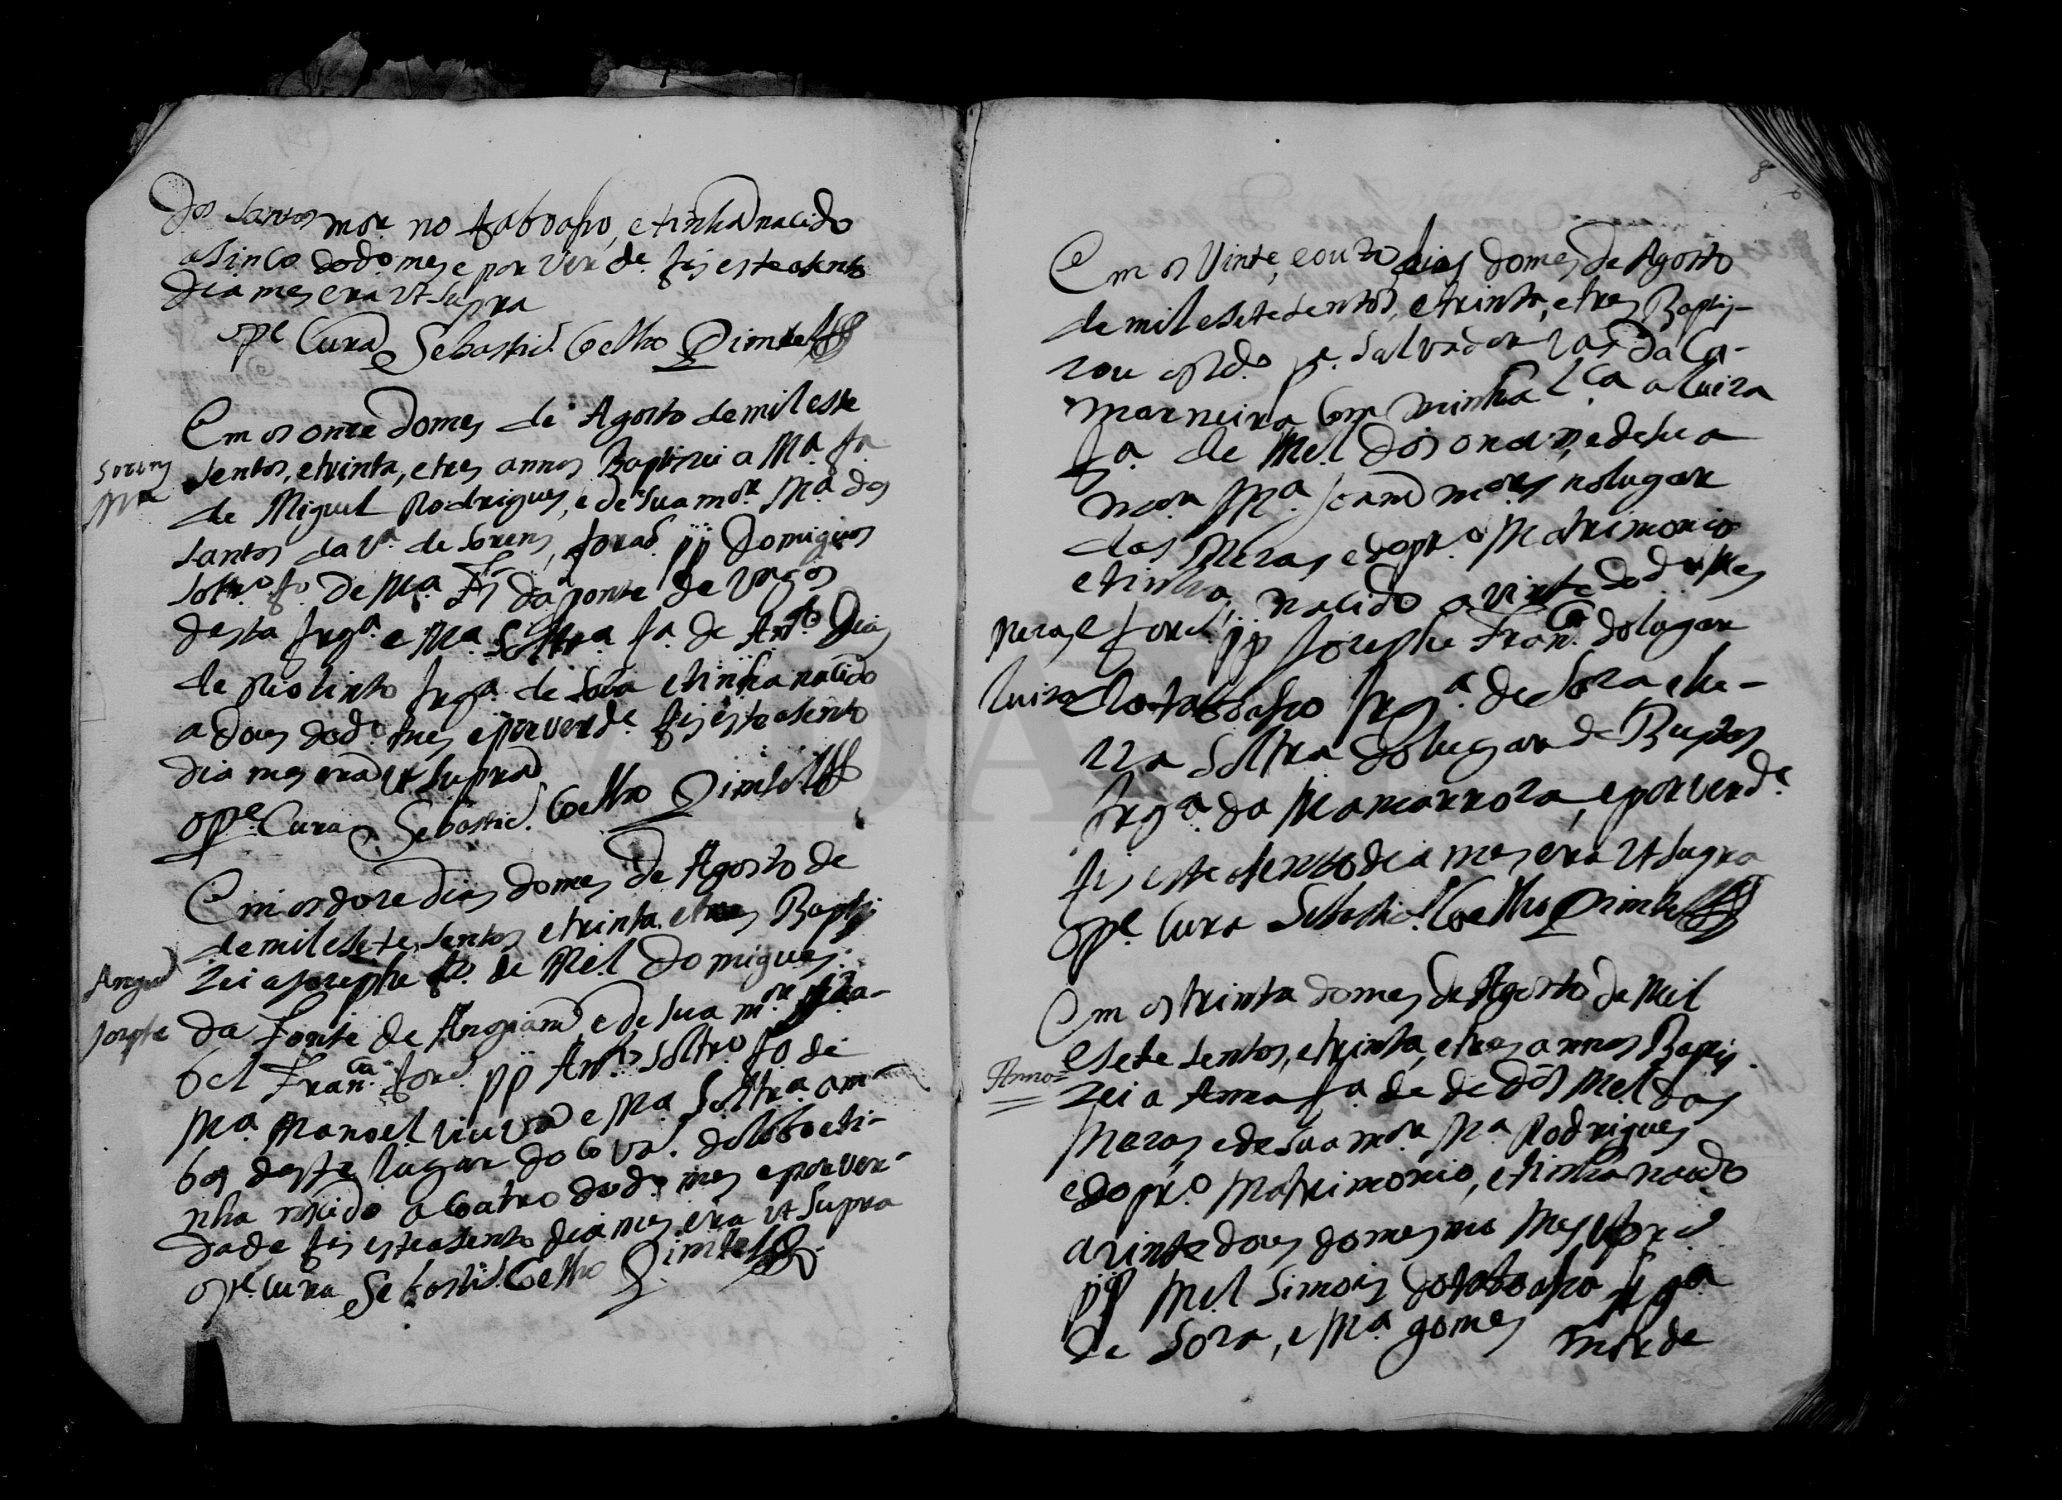 dos santos mor no taboaso, e tinha nacido
a sinco do do. mes e por verde. fis este asento
dia mes era ut supra
o pe Cura Sebastiã. Coelho Pimtel
Em os onze do mes de Agosto de mil e sete
sentos, e trinta, e tres annos Baptizei a Ma. fa.
de Miguel Rodrigues, e de sua mor. Ma dos
santos da Va. de Sorens, forão pp Domigos
Soltro. fo. de Ma. Fr da ponte de Vagos
desta frga. e Ma. Soltra fa. de Anto Dias
de Rio tinto frga. de Soza e tinha nacido
a dous do do. mes e por verde. fis este asento
dia mes era ut supra
o pe. Cura Sebastiã. Coelho Pimtel
Sorens
Ma
Em os doze dias do mes de Agosto de
de mil e sete sentos e trinta e tres Bapti
zei a Jozephe fo. de Mel. Domigues
da Fonte de Angiam e de sua mor Iza-
bel Franca. forã pp Anto. Soltro fo de
Ma. Manoel viuva e Ma Soltra am-
bos deste lugar do Covã. do Lobo e ti-
nha nacido a coatro do do mes e por ver-
dade fis este asento dia mes era ut supra
o pe. Cura Sebastiã. Coelho Pimtel
Angiã
Jozefe
8
Em os vinte, e outo dias do mes de Agosto
de mil e sete sentos, e trinta, e tres Baptis-
zou o Rdo. pe. Salvador Vas da Ca-
marneira com minha lca a Luiza
fa. de Mel. dos e de sua
mor. Ma. Joam mores no lugar
das Mezas e do pro Matrimonio
e tinha nacido a vinte do do mes
e forã pp Josephe Franco. do lugar
do taboaso frga. de Soza e Lu-
iza Soltra do lugar de Bustos
frga. da Mamarroza, e por verde.
fis este asento dia mes era ut supra
o pe. Cura Sebastiã. Coelho Pimtel
Mezas
Luiza
Em os trinta do mes de Agosto de Mil
e sete sentos, e trinta, e tres annos Baptis.
zei a Anna fa. de de Dos Mel. das
Mezas e de sua mor Ma Rodrigues
e do pro Matrimonio, e tinha nacido
a vinte dous do mesmo Mes forã
pp Mel Simois do taboaso frga
de Soza, e Ma gomes mor de
Anna